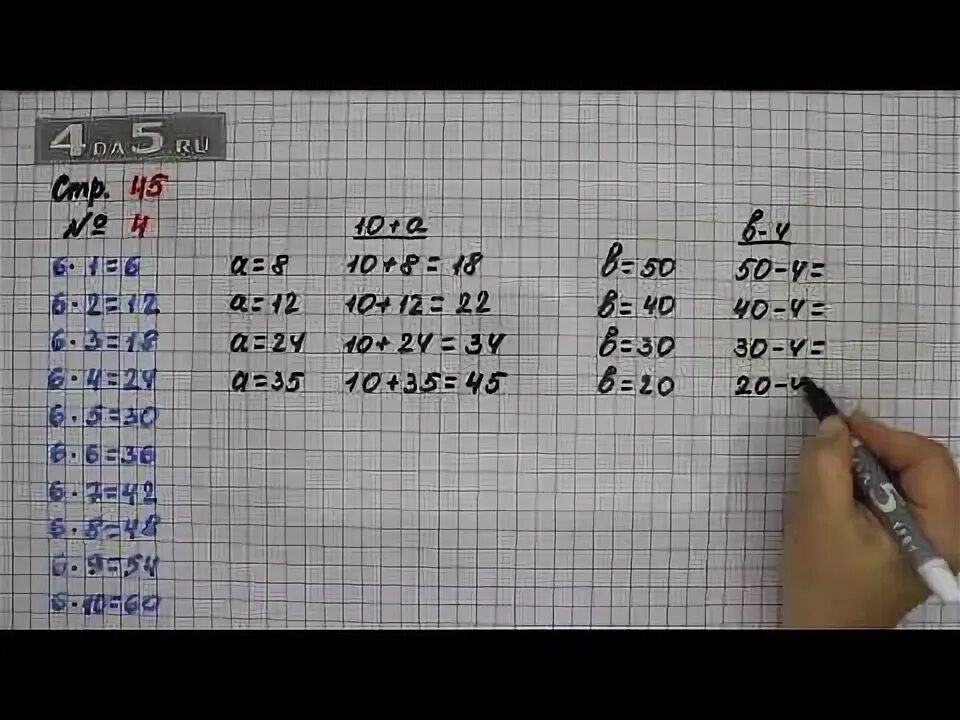 4 DA 5.RU
Стр. 45
№ 4
6·1=6
6·2=12
6·3=18
6·4=24
6·5=30
6·6=36
6·7=42
6·8=48
6·9=54
6·10=60
10+a
a=8 10+8=18
a=12 10+12=22
a=24 10+24=34
a=35 10+35=45
в-4
в=50 50-4=
в=40 40-4=
в=30 30-4=
в=20 20-4